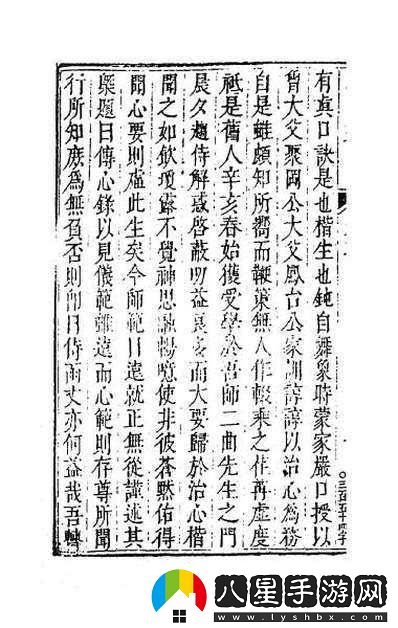 有真口訣是也楷生也鈍自舞象時蒙家嚴口授以
曾大父聚岡公大父鳳台公家訓諄諄以治心為務
自是雖頗知所嚮而鞭策無人作輟乘之荏苒虛度
祗是舊人辛亥春始獲受學於吾師二曲先生之門
晨夕趨侍解惑啓蔽叨益良多而大要歸於治心楷
聞之如飲瓊露不覺神思融暢噫使非彼蒼默佑得
聞心要則虛此生矣今師範日遠就正無從謹述其
槩題曰傳心錄以見儀範雖遠而心範則存尊所聞
行所知庶為無負否則卽日侍函丈亦何益哉吾
八星手游网
www.lyshbx.com